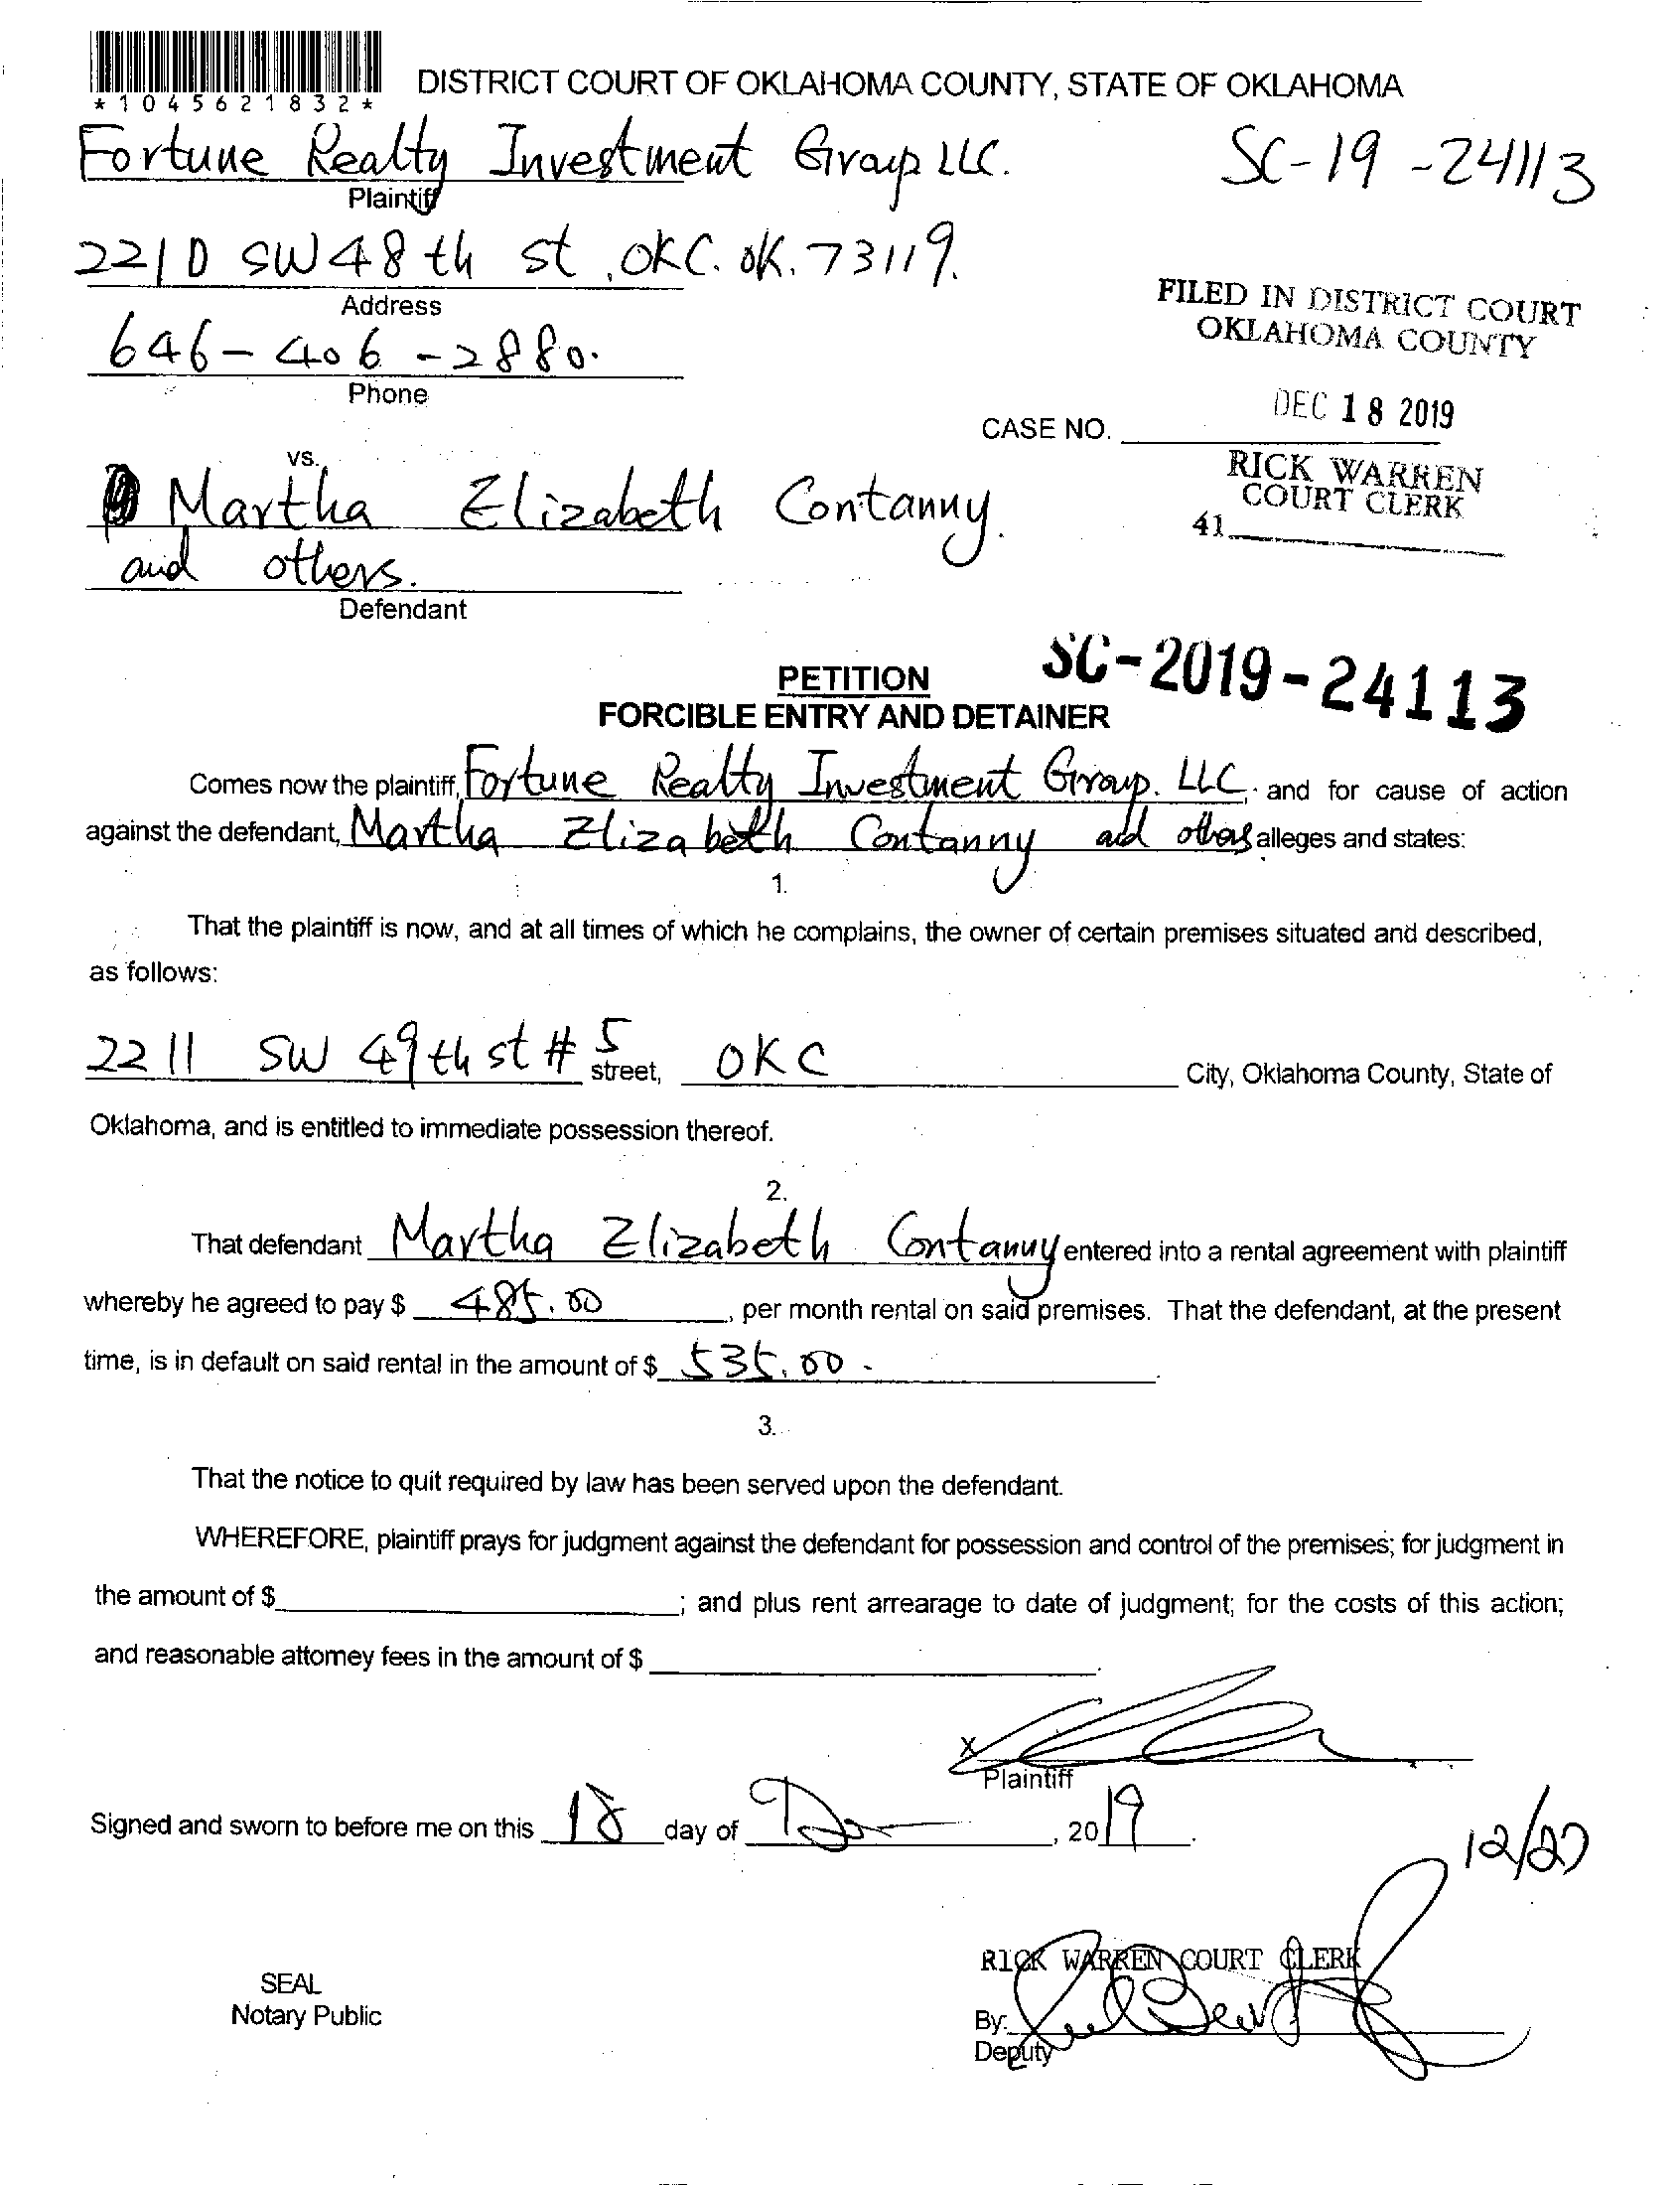 *1045621832*
DISTRICT COURT OF OKLAHOMA COUNTY, STATE OF OKLAHOMA
Fortune Realty Investment Group LLC.
SC-19-24113
Plaintiff
2210 SW 48th st, OKC. OK. 73119.
Address
646-406-2880.
Phone
FILED IN DISTRICT COURT
OKLAHOMA COUNTY
DEC 18 2019
CASE NO.
RICK WARREN
COURT CLERK
41
vs.
Martha Elizabeth Contanny.
and others.
Defendant
SC-2019-24113
PETITION
FORCIBLE ENTRY AND DETAINER
Comes now the plaintiff, Fortune Realty Investment Group. LLC, and for cause of action
against the defendant, Martha Elizabeth Contanny and others alleges and states:
1.
That the plaintiff is now, and at all times of which he complains, the owner of certain premises situated and described,
as follows:
2211 SW 49th st # 5 street, OKC City, Oklahoma County, State of
Oklahoma, and is entitled to immediate possession thereof.
2.
That defendant Martha Elizabeth Contanny entered into a rental agreement with plaintiff
whereby he agreed to pay $ 485.00, per month rental on said premises. That the defendant, at the present
time, is in default on said rental in the amount of $ 535.00 - .
3.
That the notice to quit required by law has been served upon the defendant.
WHEREFORE, plaintiff prays for judgment against the defendant for possession and control of the premises; for judgment in
the amount of $ ; and plus rent arrearage to date of judgment; for the costs of this action;
and reasonable attorney fees in the amount of $ .
X
Plaintiff
Signed and sworn to before me on this 18 day of De , 2019.
12/27
RICK WARREN COURT CLERK
SEAL
Notary Public
By:
Deputy